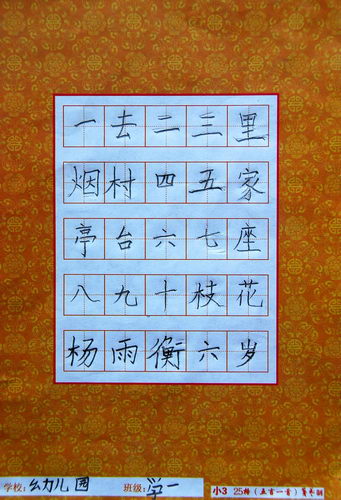 一去二三里
烟村四五家
亭台六七座
八九十枝花
杨雨衡六岁
学校：幼儿园 班级：学一 小3 25格（五言一首）